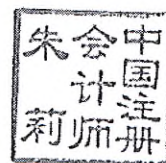 中国注册
会计师
朱莉